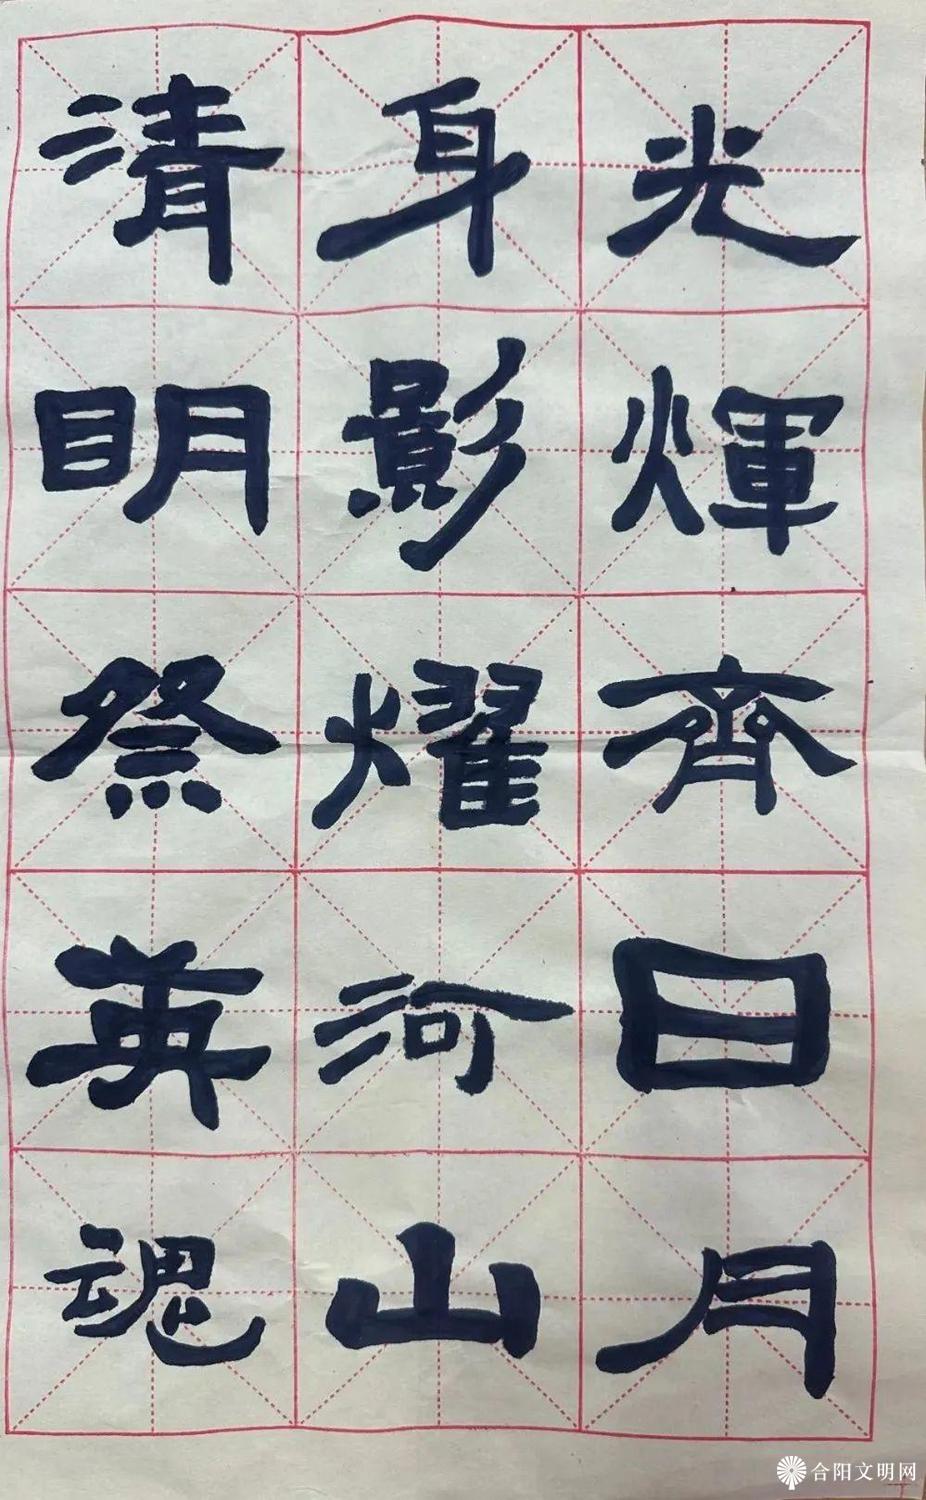 光輝齊日月
身影耀河山
清明祭英魂
合阳文明网